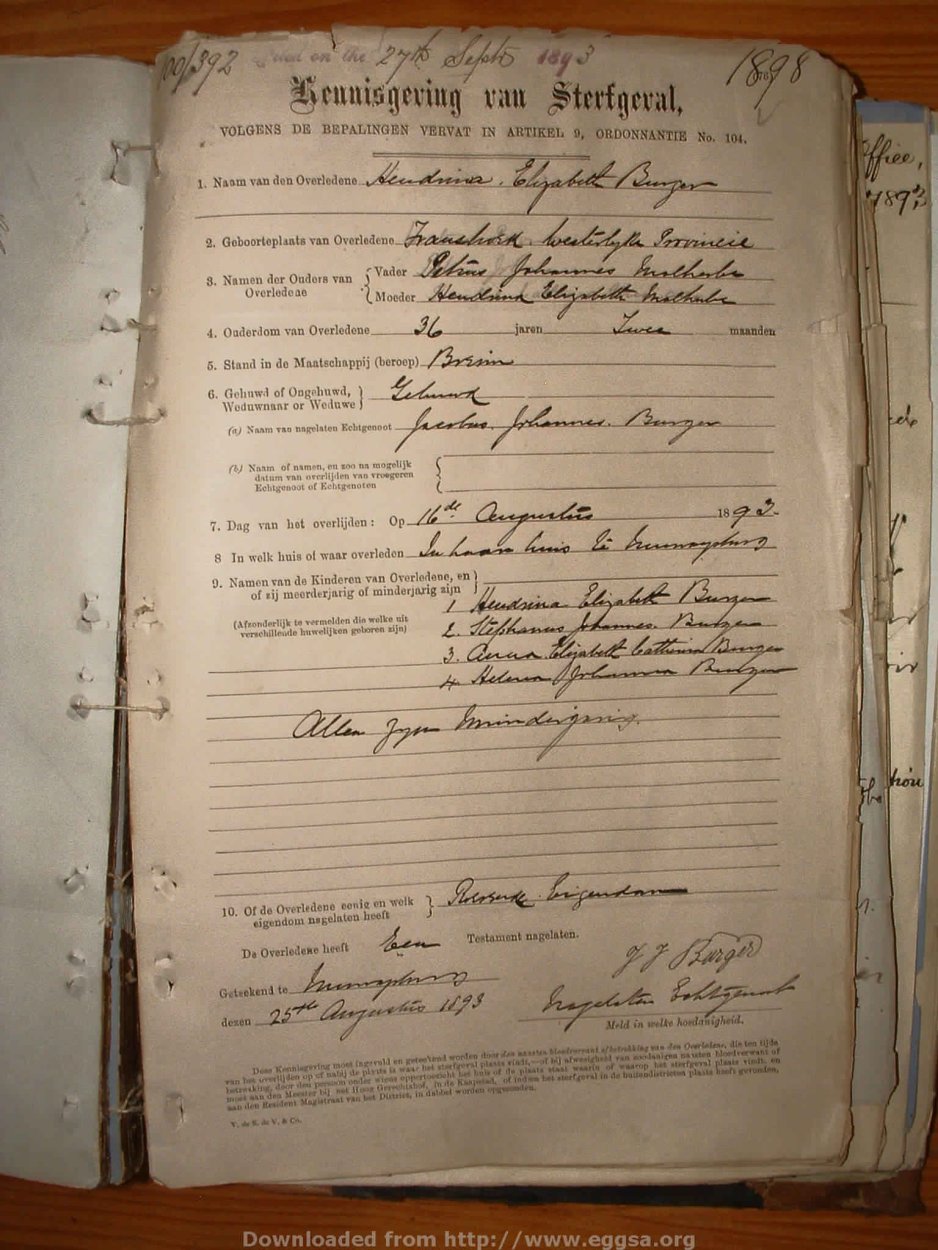 392 Filed on the 27th Septr 1893 1898
Kennisgeving van Sterfgeval,
VOLGENS DE BEPALINGEN VERVAT IN ARTIKEL 9, ORDONNANTIE No. 104.
1. Naam van den Overledene Hendrina Elizabeth Burger
2. Geboorteplaats van Overledene Franshoek Westerlyke Provincie
3. Namen der Ouders van Overledene { Vader Petrus Johannes Malherbe
{ Moeder Hendrina Elizabeth Malherbe
4. Ouderdom van Overledene 36 jaren Twee maanden
5. Stand in de Maatschappij (beroep)
6. Gehuwd of Ongehuwd, Weduwnaar or Weduwe } Gehuwd
(a) Naam van nagelaten Echtgenoot Jacobus Johannes Burger
(b) Naam of namen, en zoo na mogelijk
datum van overlijden van vroegeren
Echtgenoot of Echtgenoten
7. Dag van het overlijden: Op 16de Augustus 1893
8 In welk huis of waar overleden In haar huis te Murraysburg
9. Namen van de Kinderen van Overledene, en
of zij meerderjarig of minderjarig zijn }
1 Hendrina Elizabeth Burger
(Afzonderlijk te vermelden die welke uit
verschillende huwelijken geboren zijn)
2. Stephanus Johannes Burger
3. Anna Elizabeth Catherina Burger
4. Helena Johanna Burger
Allen zyn minderjarig
10. Of de Overledene eenig en welk
eigendom nagelaten heeft } Roerende Eigendom
De Overledene heeft Een Testament nagelaten.
J J Burger
Geteekend te Murraysburg
Nagelaten Echtgenoot
dezen 25ste Augustus 1893
Meld in welke hoedanigheid.
Deze Kennisgeving moet ingevuld en geteekend worden door den naasten bloedverwant of betrekking van den Overledene, die ten tijde
van het overlijden op of nabij de plaats is waar het sterfgeval plaats vindt,—of bij afwezigheid van zoodanigen naasten bloedverwant of
betrekking, door den persoon onder wiens oppertoezicht het huis of de plaats staat waarin of waarop het sterfgeval plaats vindt, en
moet aan den Meester bij het Hoog Gerechtshof, in de Kaapstad, of indien het sterfgeval in de buitendistricten plaats heeft gevonden,
aan den Resident Magistraat van het District, in dubbel worden opgezonden.
V. de S. de V. & Co.
Office,
1893
Downloaded from http://www.eggsa.org